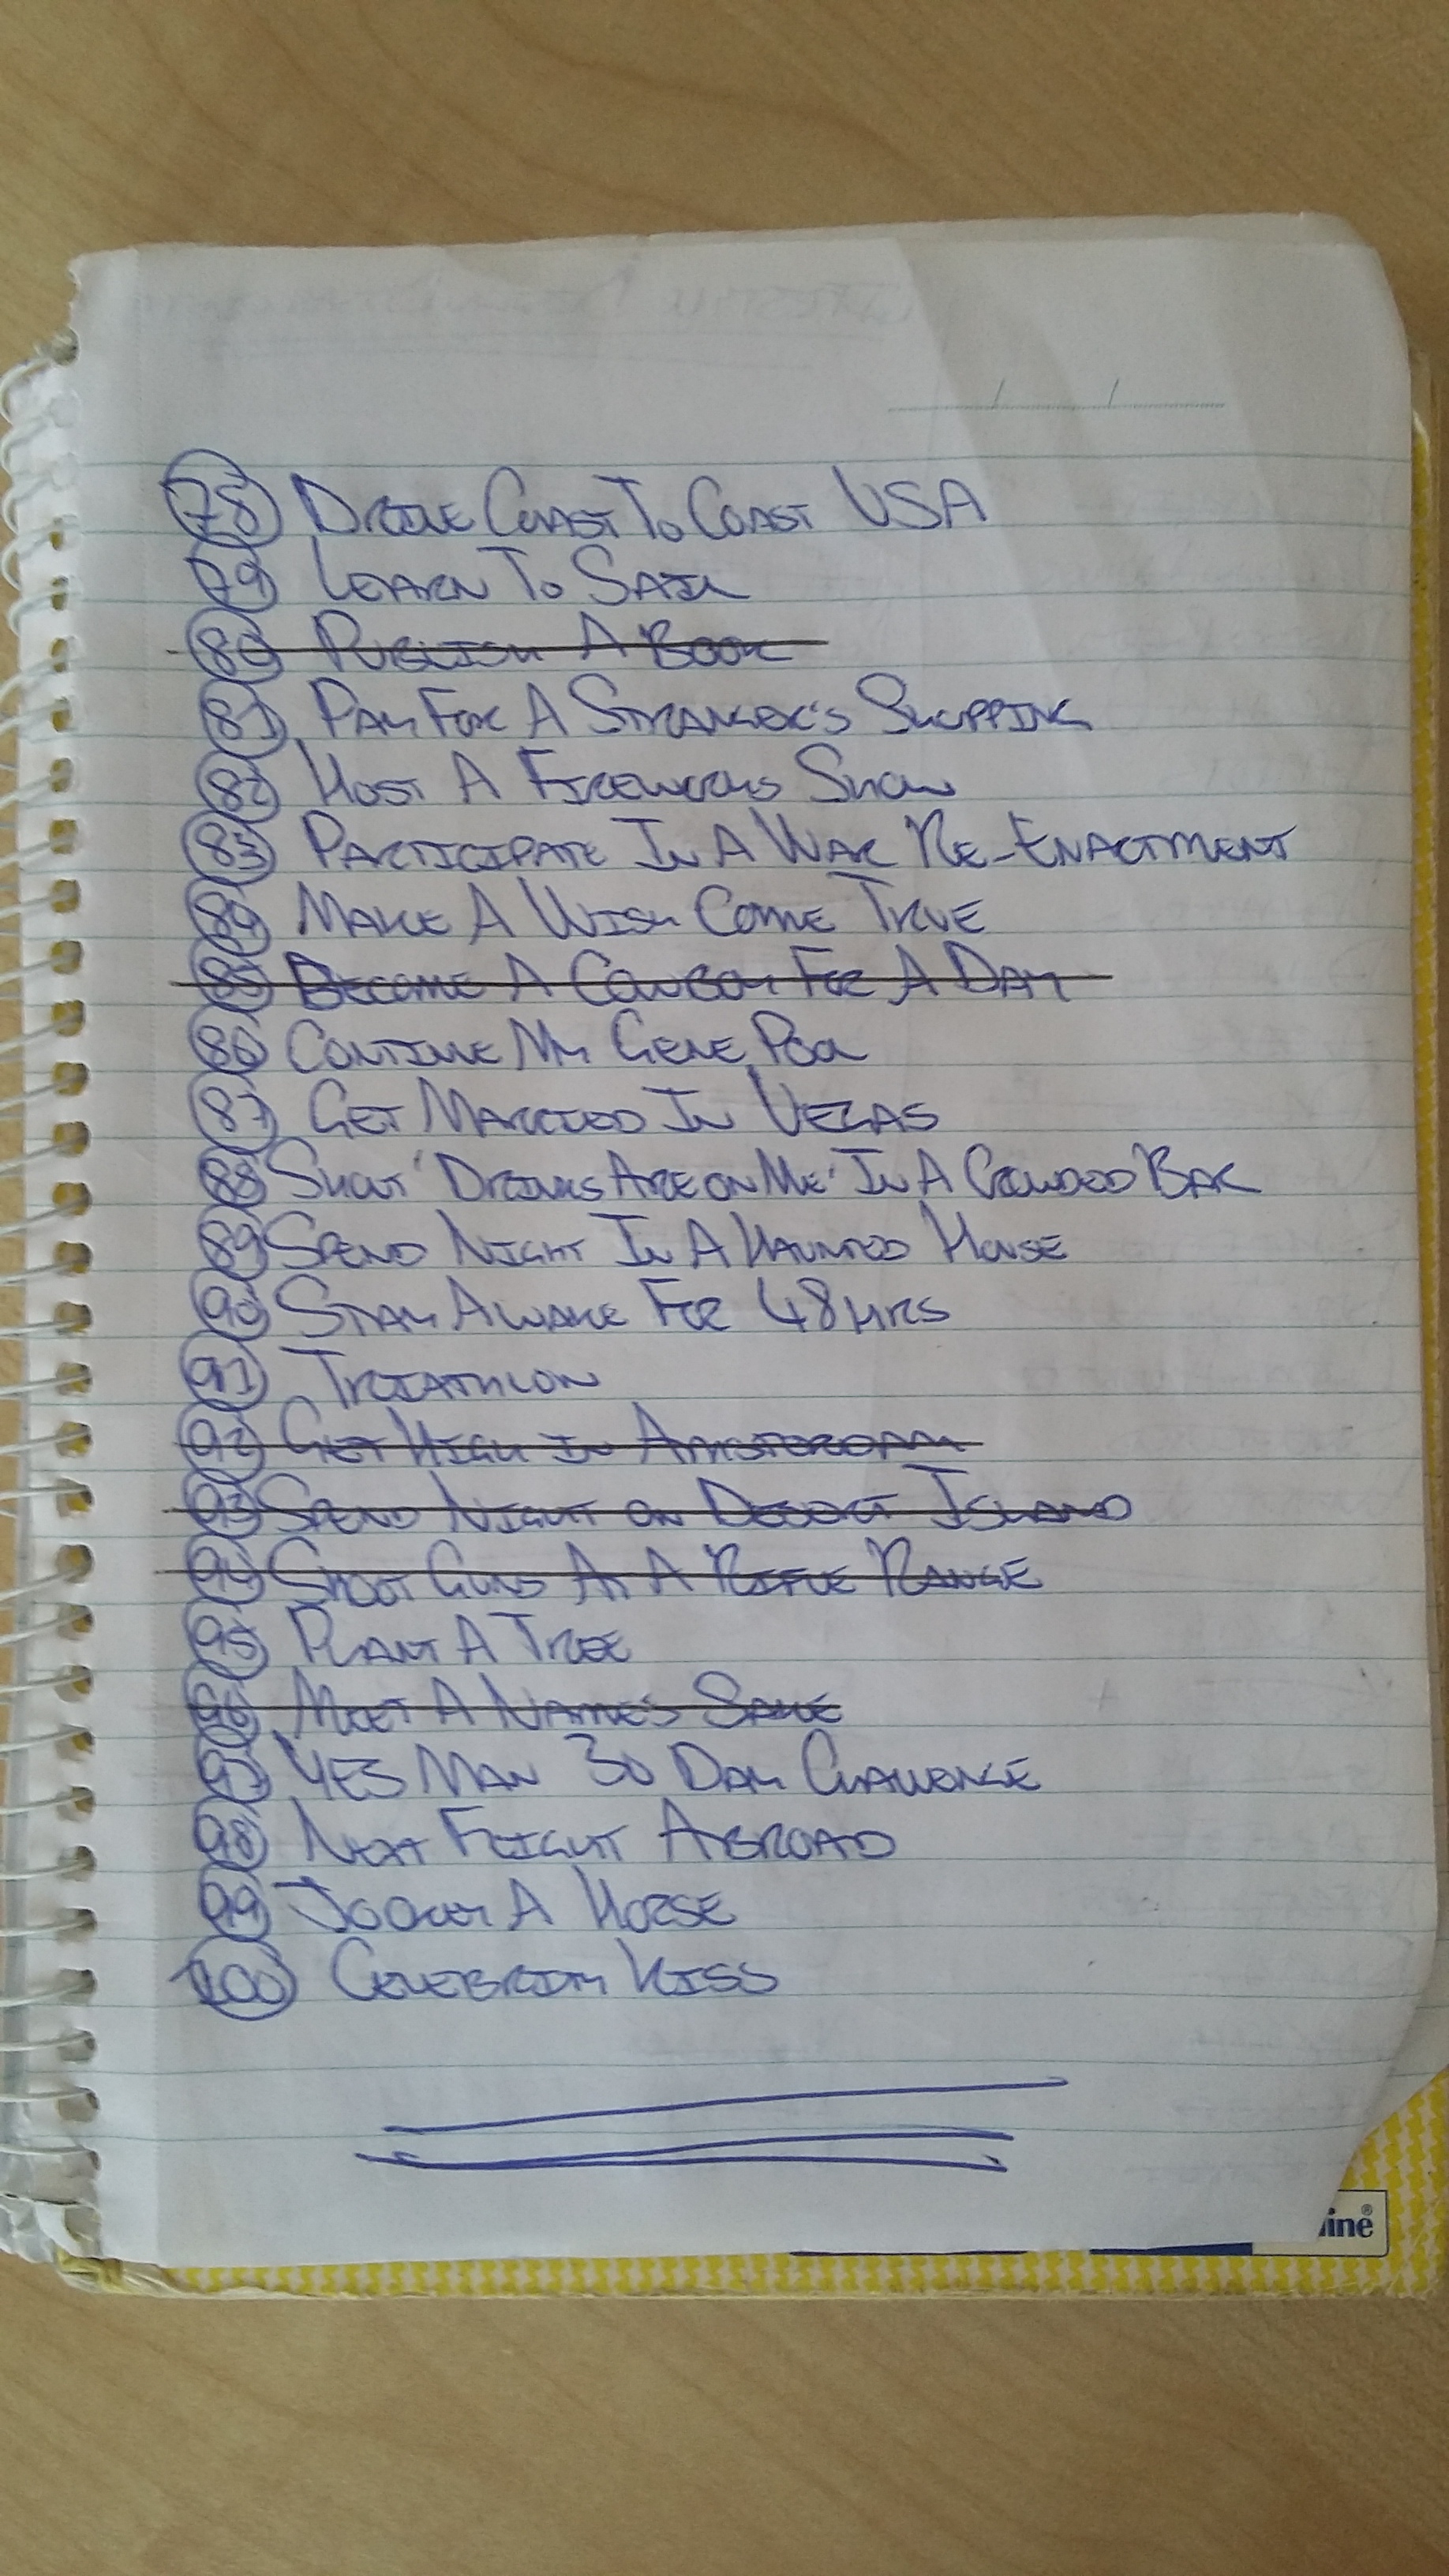 78 DRIVE COAST TO COAST USA
79 LEARN TO SAIL
80 PUBLISH A BOOK
81 PAY FOR A STRANGER'S SHOPPING
82 HOST A FIREWORKS SHOW
83 PARTICIPATE IN A WAR RE-ENACTMENT
84 MAKE A WISH COME TRUE
85 BECOME A COWBOY FOR A DAY
86 CONTINUE MY GENE POOL
87 GET MARRIED IN VEGAS
88 SHOUT 'DRINKS ARE ON ME' IN A CROWDED BAR
89 SPEND NIGHT IN A HAUNTED HOUSE
90 STAY AWAKE FOR 48HRS
91 TRIATHLON
92 GET HIGH IN AMSTERDAM
93 SPEND NIGHT ON DESERT ISLAND
94 SHOOT GUNS AT A RIFLE RANGE
95 PLANT A TREE
96 MEET A NAMES SAKE
97 YES MAN 30 DAY CHALLENGE
98 NEXT FLIGHT ABROAD
99 JOCKEY A HORSE
100 CELEBRITY KISS
ine®